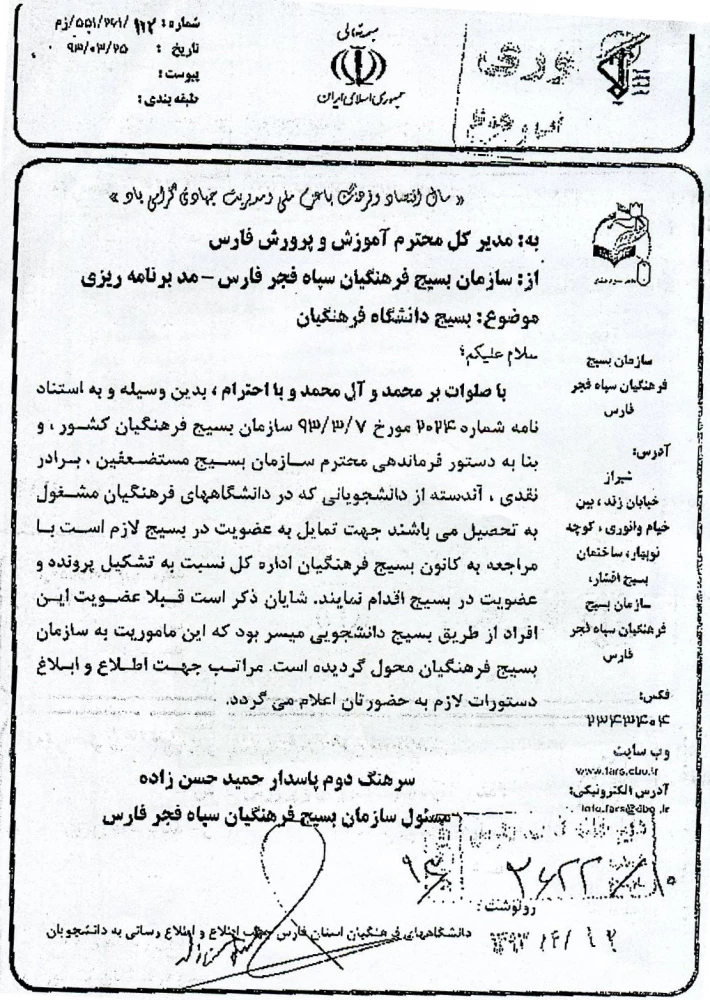 بسمه تعالی
جمهوری اسلامی ایران
شماره: ۵۵۱/۲۶۱/ز م
تاریخ : ۹۳/۰۳/۲۵
پیوست:
طبقه بندی:
« سال اقتصاد و فرهنگ با عزم ملی و مدیریت جهادی گرامی باد »
به: مدیر کل محترم آموزش و پرورش فارس
از: سازمان بسیج فرهنگیان سپاه فجر فارس – مد برنامه ریزی
موضوع: بسیج دانشگاه فرهنگیان
سلام علیکم؛
با صلوات بر محمد و آل محمد و با احترام ، بدین وسیله و به استناد
نامه شماره ۲۰۲۴ مورخ ۹۳/۳/۷ سازمان بسیج فرهنگیان کشور ، و
بنا به دستور فرماندهی محترم سازمان بسیج مستضعفین ، برادر
نقدی ، آندسته از دانشجویانی که در دانشگاههای فرهنگیان مشغول
به تحصیل می باشند جهت تمایل به عضویت در بسیج لازم است با
مراجعه به کانون بسیج فرهنگیان اداره کل نسبت به تشکیل پرونده و
عضویت در بسیج اقدام نمایند. شایان ذکر است قبلا عضویت این
افراد از طریق بسیج دانشجویی میسر بود که این ماموریت به سازمان
بسیج فرهنگیان محول گردیده است. مراتب جهت اطلاع و ابلاغ
دستورات لازم به حضورتان اعلام می گردد.
سرهنگ دوم پاسدار حمید حسن زاده
مسئول سازمان بسیج فرهنگیان سپاه فجر فارس
سازمان بسیج
فرهنگیان سپاه فجر
فارس
آدرس:
شیراز
خیابان زند ، بین
خیام وانوری ، کوچه
نوبهار، ساختمان
بسیج اقشار،
سازمان بسیج
فرهنگیان سپاه فجر
فارس
فکس:
۲۳۴۳۴۰۴
وب سایت
آدرس الکترونیکی:
رونوشت :
دانشگاههای فرهنگیان استان فارس جهت ابلاغ و اطلاع رسانی به دانشجویان